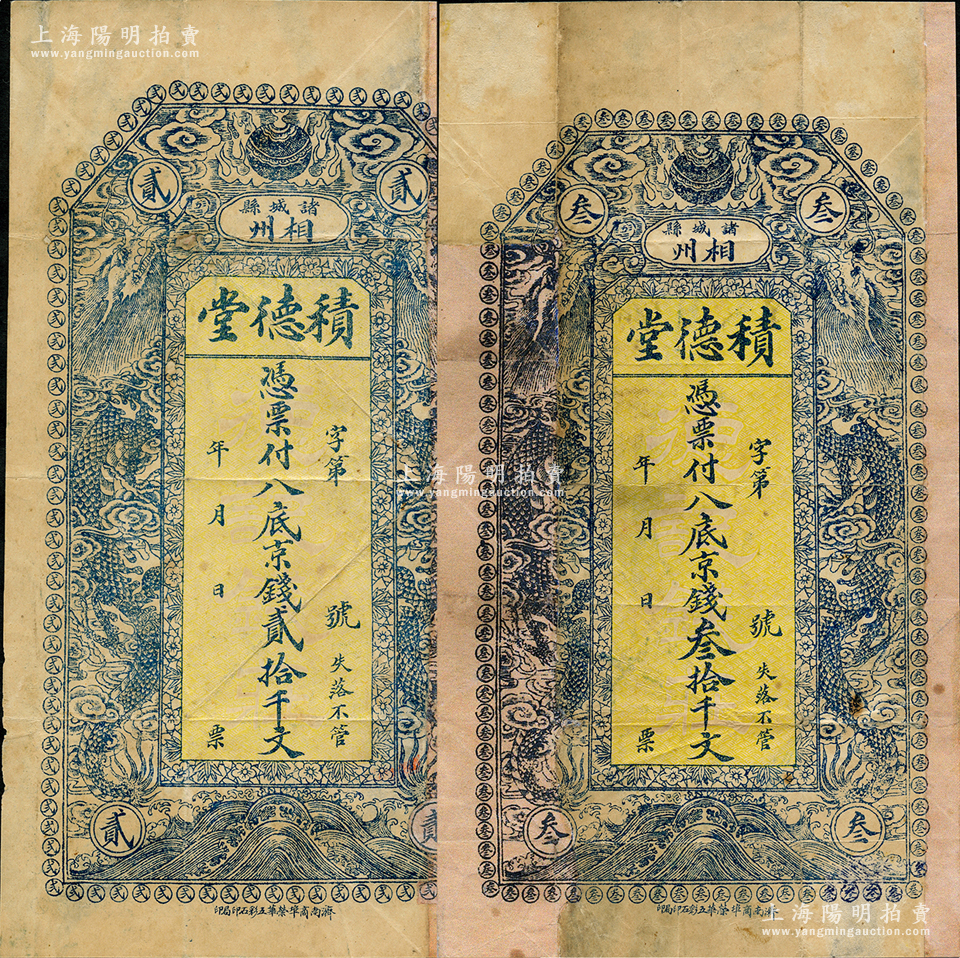 上海陽明拍賣
www.yangmingauction.com
貳
貳
諸城縣
相州
積德堂
字第 號 失落不管
憑票付八底京錢貳拾千文
年 月 日 票
貳
貳
濟南商埠榮華五彩石印局印
叁
叁
諸城縣
相州
積德堂
字第 號 失落不管
憑票付八底京錢叁拾千文
年 月 日 票
叁
叁
濟南商埠榮華五彩石印局印
上海陽明拍賣
www.yangmingauction.com
上海陽明拍賣
www.yangmingauction.com